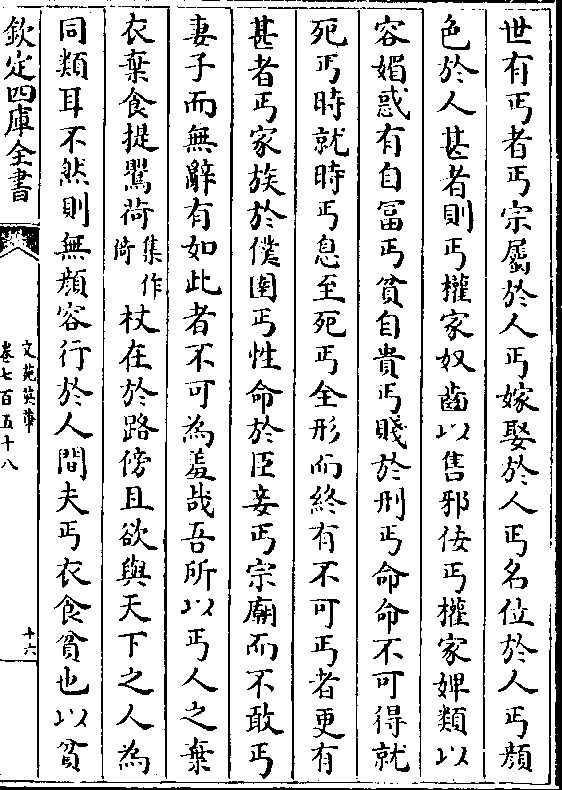 世有丐者丐宗屬於人丐嫁娶於人丐名位於人丐顔
色於人甚者則丐權家奴齒以售邪佞丐權家婢類以
容媚惑有自富丐貧自貴丐賤於刑丐命命不可得就
死丐時就時丐息至死丐全形而終有不可丐者更有
甚者丐家族於僕圉丐性命於臣妾丐宗廟而不敢丐
妻子而無辭有如此者不可為羞哉吾所以丐人之棄
衣棄食提甖荷集作倚杖在於路傍且欲與天下之人為
同類耳不然則無顔容行於人間夫丐衣食貧也以貧
欽定四庫全書
文苑英華
卷七百五十八
十六